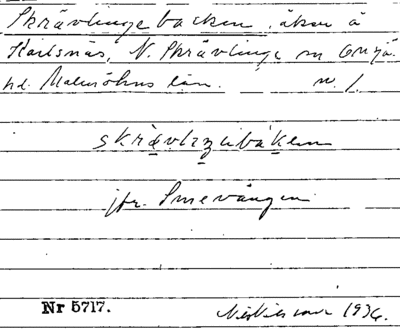 Skrävlinge backen, åker å
Karlsnäs, N. Skrävlinge sn Oxie
hd. Malmöhus län. n. 1.
skrävlıŋebákɛn
jfr. Smevången
Nr 5717.
1936.